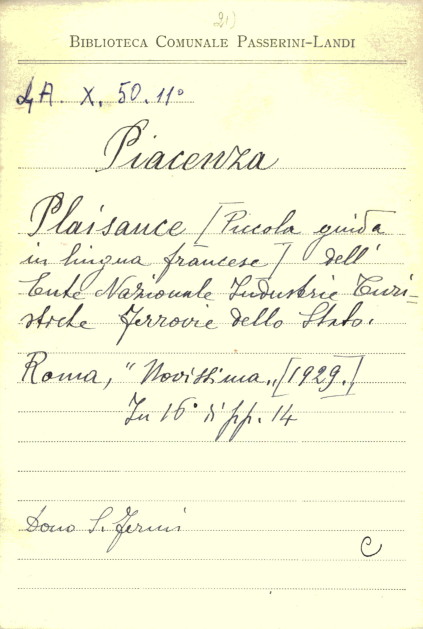 21)
BIBLIOTECA COMUNALE PASSERINI-LANDI
4A. X. 50. 11°
Piacenza
Plaisance [Piccola guida
in lingua francese] dell'
Ente Nazionale Industrie Turi-
stiche Ferrovie dello Stato.
Roma, "Novissima„ [1929.]
In 16° di pp. 14
Dono S. Fermi
C